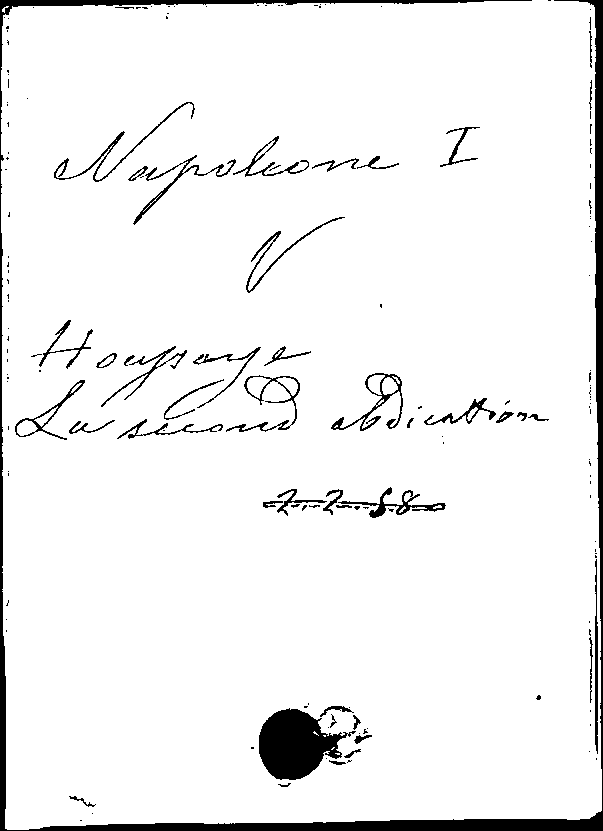 Napoleone I
V
Houssaye
La second abdication
2.2.58